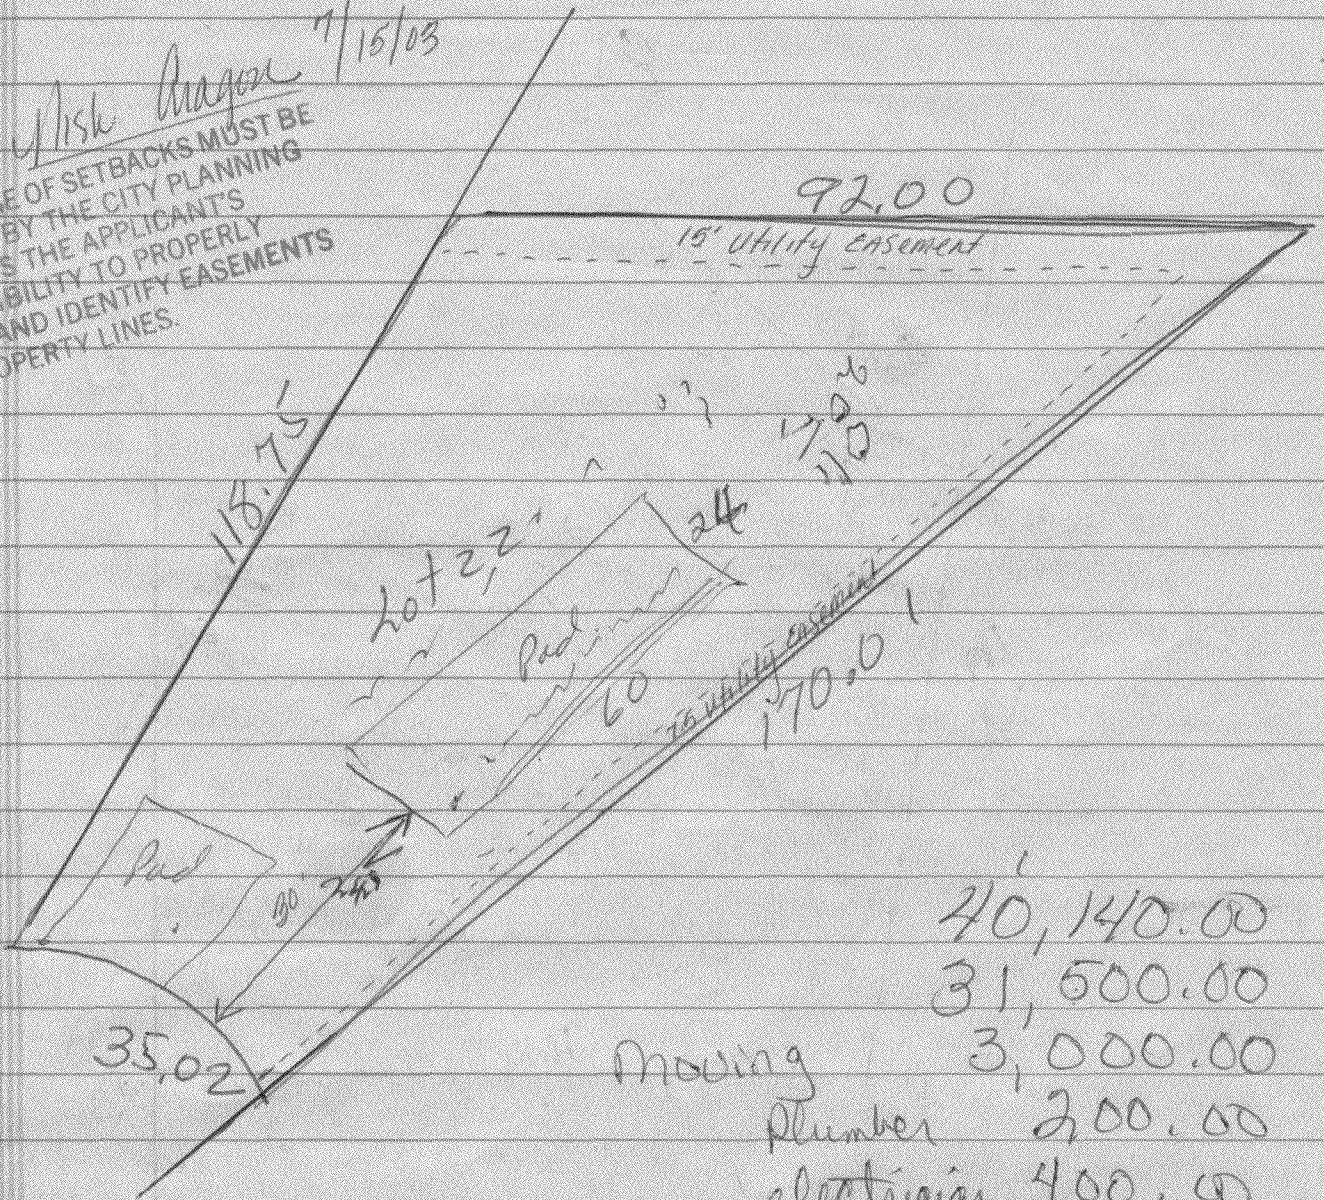 7/15/03
Aragon
E OF SETBACKS MUST BE
BY THE CITY PLANNING
S THE APPLICANT'S
ABILITY TO PROPERLY
AND IDENTIFY EASEMENTS
OPERTY LINES.
92.00
15' Utility Easement
118.75'
Lot 22
24
Pad
60
7.5 Utility Easement
170.0'
Pad
30
24'
35.02
40,140.00
31,500.00
Moving 3,000.00
Plumber 200.00
electrician 400.00